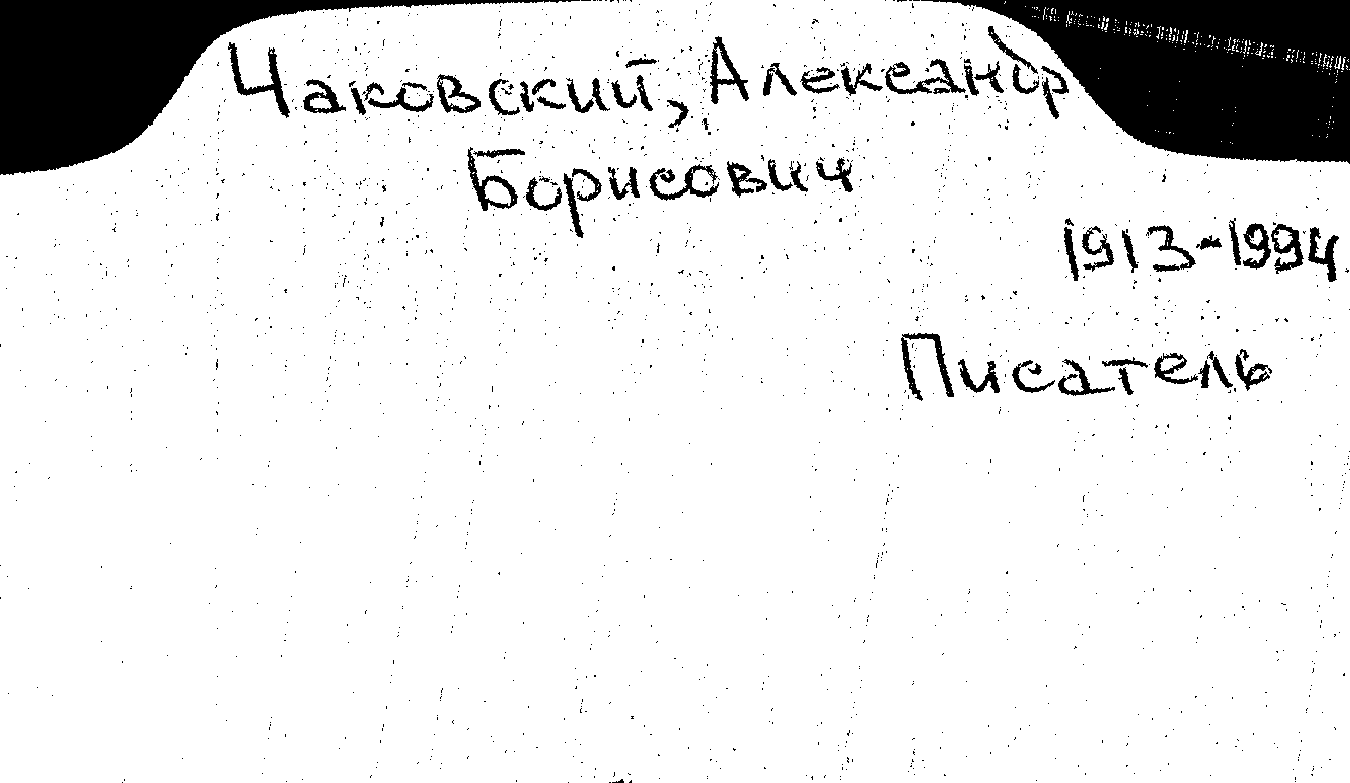 Чаковский, Александр
Борисович
1913-1994
Писатель